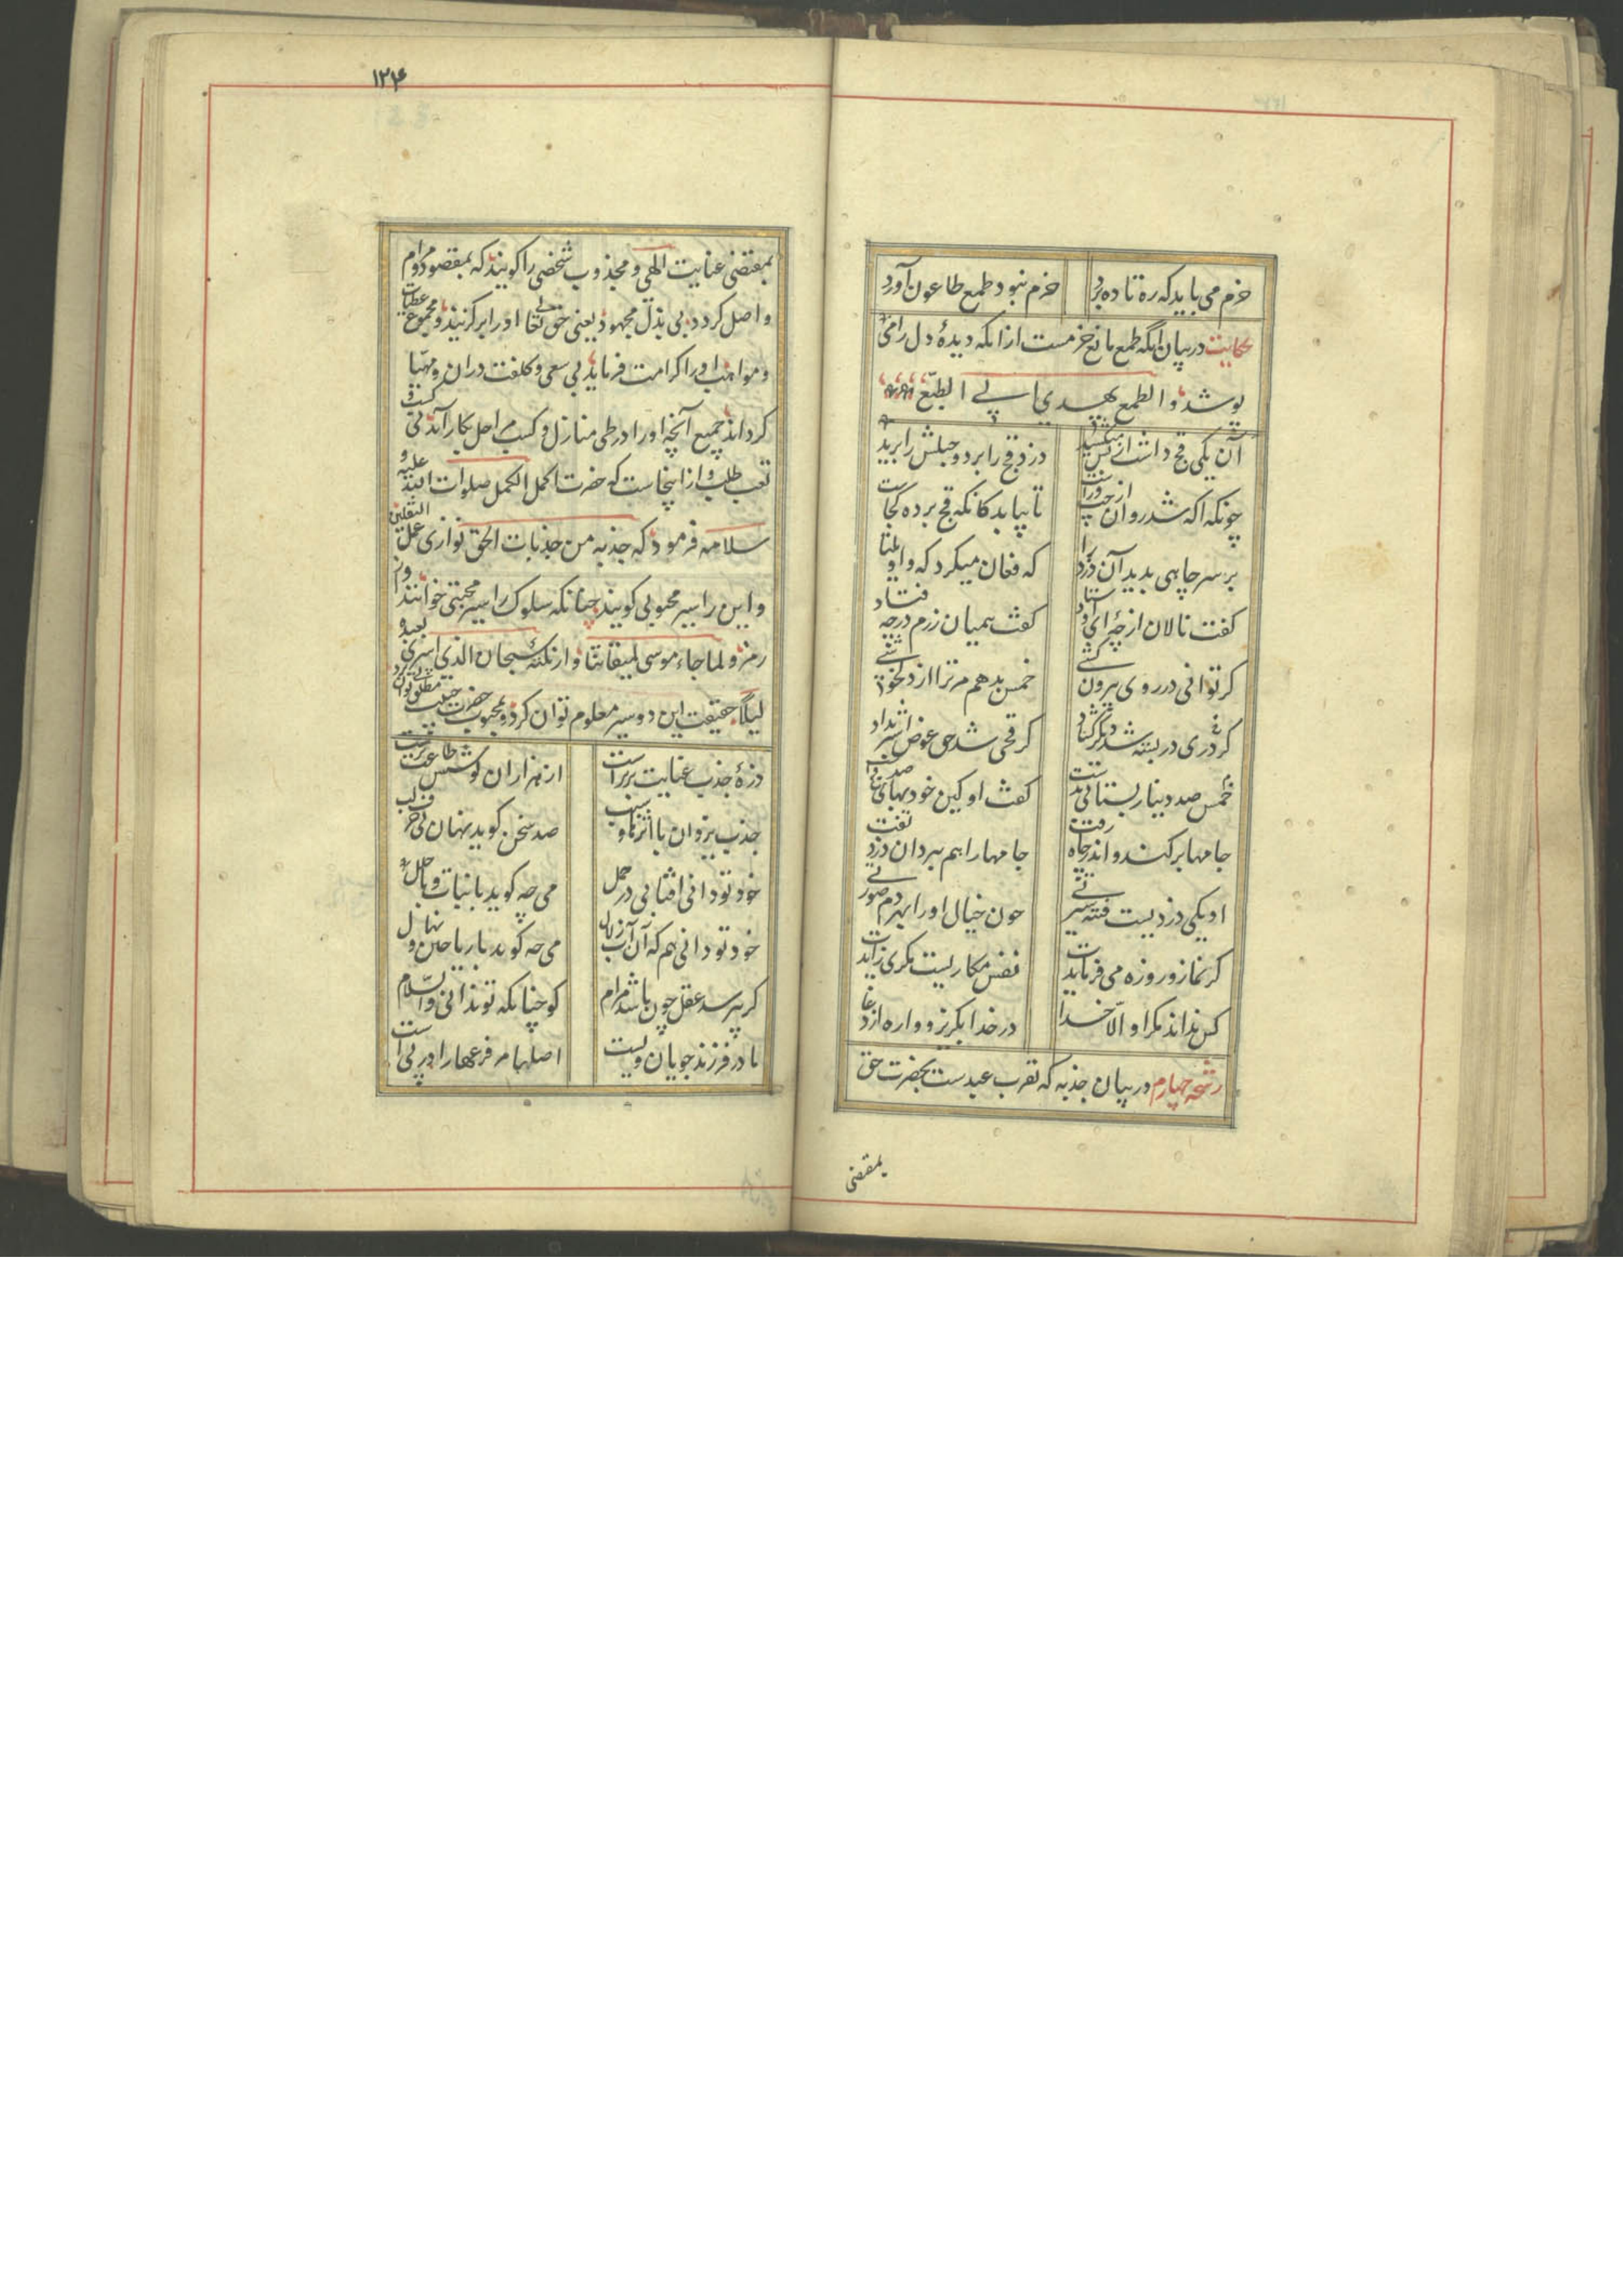 حزم می باید که ره تا ده برد حزم نبود طمع طاعون آورد
حکایت در بیان آنکه طمع مانع حزمست از آنکه دیدهٔ دل را می
پوشد و الطمع یهدی الی الطبع
آن یکی قج داشت از پس میکشید دزد قج را برد و حبلش را برید
چونکه اکه شد دوان شد چپ و راست تا بیابد کانکه قج برده کجاست
بر سر چاهی بدید آن دزد را که فغان میکرد که واویلتا
کفت نالان از چهٔ ای اوستاد کفت همیان زرم در چه فتاد
کر توانی در روی بیرون کشی خمس بدهم مر ترا از دلخوشی
خمس صد دینار بستانی بدست کفت او کین خود بهای ده قجست
کر دری در بسته شد ده در کشاد کر قجی شد حق عوض اشتر بداد
جامها برکند و اندر چاه رفت جامها را هم ببرد آن دزد تفت
او یکی دزدیست فتنه سیرتی چون خیال او را بهر دم صورتی
کر نماز و روزه می فرمایدت نفس مکاریست مکری زایدت
کس نداند مکر او الا خدا در خدا بکریز و واره از دغا
رشحه چهارم در بیان جذبه که تقرب عبد ست بحضرت حق
بمقتضی
۱۲۴
بمقتضی عنایت الهی و مجذوب شخصی را کویند که بمقصود و مرام
واصل کردد بی بذل مجهود یعنی حق تعالی او را بر کزیند و مجموع عطیات
و مواهب او را کرامت فرماید بی سعی و کلفت دران و مهیا
کرداند جمیع آنچه او را در طی منازل و کسب مراحل بکار آید بی کسب و
تعب طلب و از اینجاست که حضرت اکمل الکمل صلوات الله علیه و
سلامه فرمود که جذبه من جذبات الحق توازی عمل الثقلین
و این را سیر محبوبی کویند چنانکه سلوک را سیر محبتی خوانند و از
رمز و لما جاء موسی لمیقاتنا و از نکتهٔ سبحان الذی اسری بعبده
لیلا حقیقت این دو سیر معلوم توان کرد و محبوب حضرت
ذرهٔ جذب عنایت برترست از هزاران کوشش طاعت پرست
جذب یزدان با اثرها و سبب صد سخن کوید نهان بی حرف و لب
خود تو دانی افتابی در حمل می چه کوید با نبات و با حلل
خود تو دانی هم که آن آب زلال می چه کوید با ریاحین و نهال
کر بپرسد عقل چون باشد مرام کو چنانکه تو ندانی والسلام
مادر فرزند جویان ویست اصلها مر فرعها را در پی است